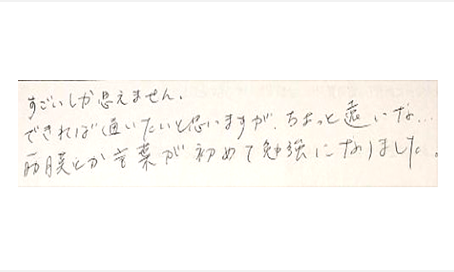 すごいしか思えません.
できれば通いたいと思いますが、ちょっと遠いな…
筋膜とか言葉が初めて勉強になりました。